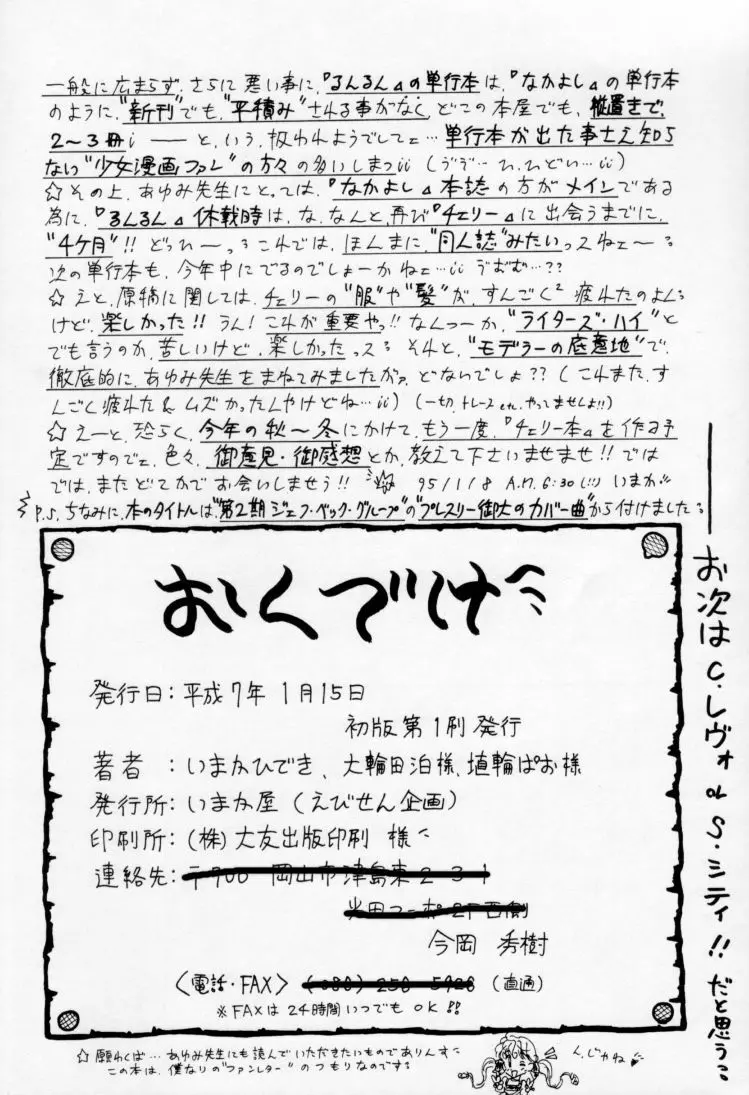 一般に広まらず、さらに悪い事に、『るんるん』の単行本は、『なかよし』の単行本
のように、"新刊"でも、"平積み"される事がなく、どこの本屋でも、縦置きで、
2〜3冊 ── と、いう、扱われようでしてェ…単行本が出た事さえ知ら
ない"少女漫画ファン"の方々の多いしまつ (うぞ… ひ、ひどい…)
☆その上、あゆみ先生にとっては、『なかよし』本誌の方がメインである
為に、『るんるん』休載時は、な、なんと、再び『チェリー』に出会うまでに、
"4ケ月"!! どっひーっ これでは、ほんまに、"同人誌"みたいっスねェ〜
次の単行本も、今年中にでるのでしょーかねェ… うおむ…??
☆えと、原稿に関しては、チェリーの"服"や"髪"が、すんごく² 疲れたのよん
けど、楽しかった!! うん! これが重要やっ!! なんつーか、"ライターズ・ハイ"と
でも言うのか、苦しいけど、楽しかったっス それと、"モデラーの底意地"で、
徹底的に、あゆみ先生をまねてみましたがァ、どないでしょ?? (これまた、す
んごく疲れた & ムズかったんやけどね…) (一切、トレースetc.やってませんよ!!)
☆えーと、恐らく、今年の秋〜冬にかけて、もう一度、『チェリー本』を作る予
定ですのでェ、色々、御意見・御感想とか、教えて下さいませませ!! では
では、またどこかでお会いしませう!! 95/1/8 A.M.6:30(!!) いまか
P.S. ちなみに、本のタイトルは、"第2期ジェフ・ベック・グループ"の"プレスリー御大のカバー曲"から付けました
お次はC.レヴォ or S.シティ!! だと思う
おくづけ
発行日:平成7年1月15日
初版第1刷発行
著者 :いまかひでき、大輪田泊様、埴輪ぱお様
発行所:いまか屋(えびせん企画)
印刷所:(株)大友出版印刷 様
連絡先:
今岡 秀樹
〈電話・FAX〉 (直通)
※FAXは24時間いつでもOK!!
☆願わくば…あゆみ先生にも読んでいただきたいものでありんす
この本は、僕なりの"ファンレター"のつもりなのです
んじゃね